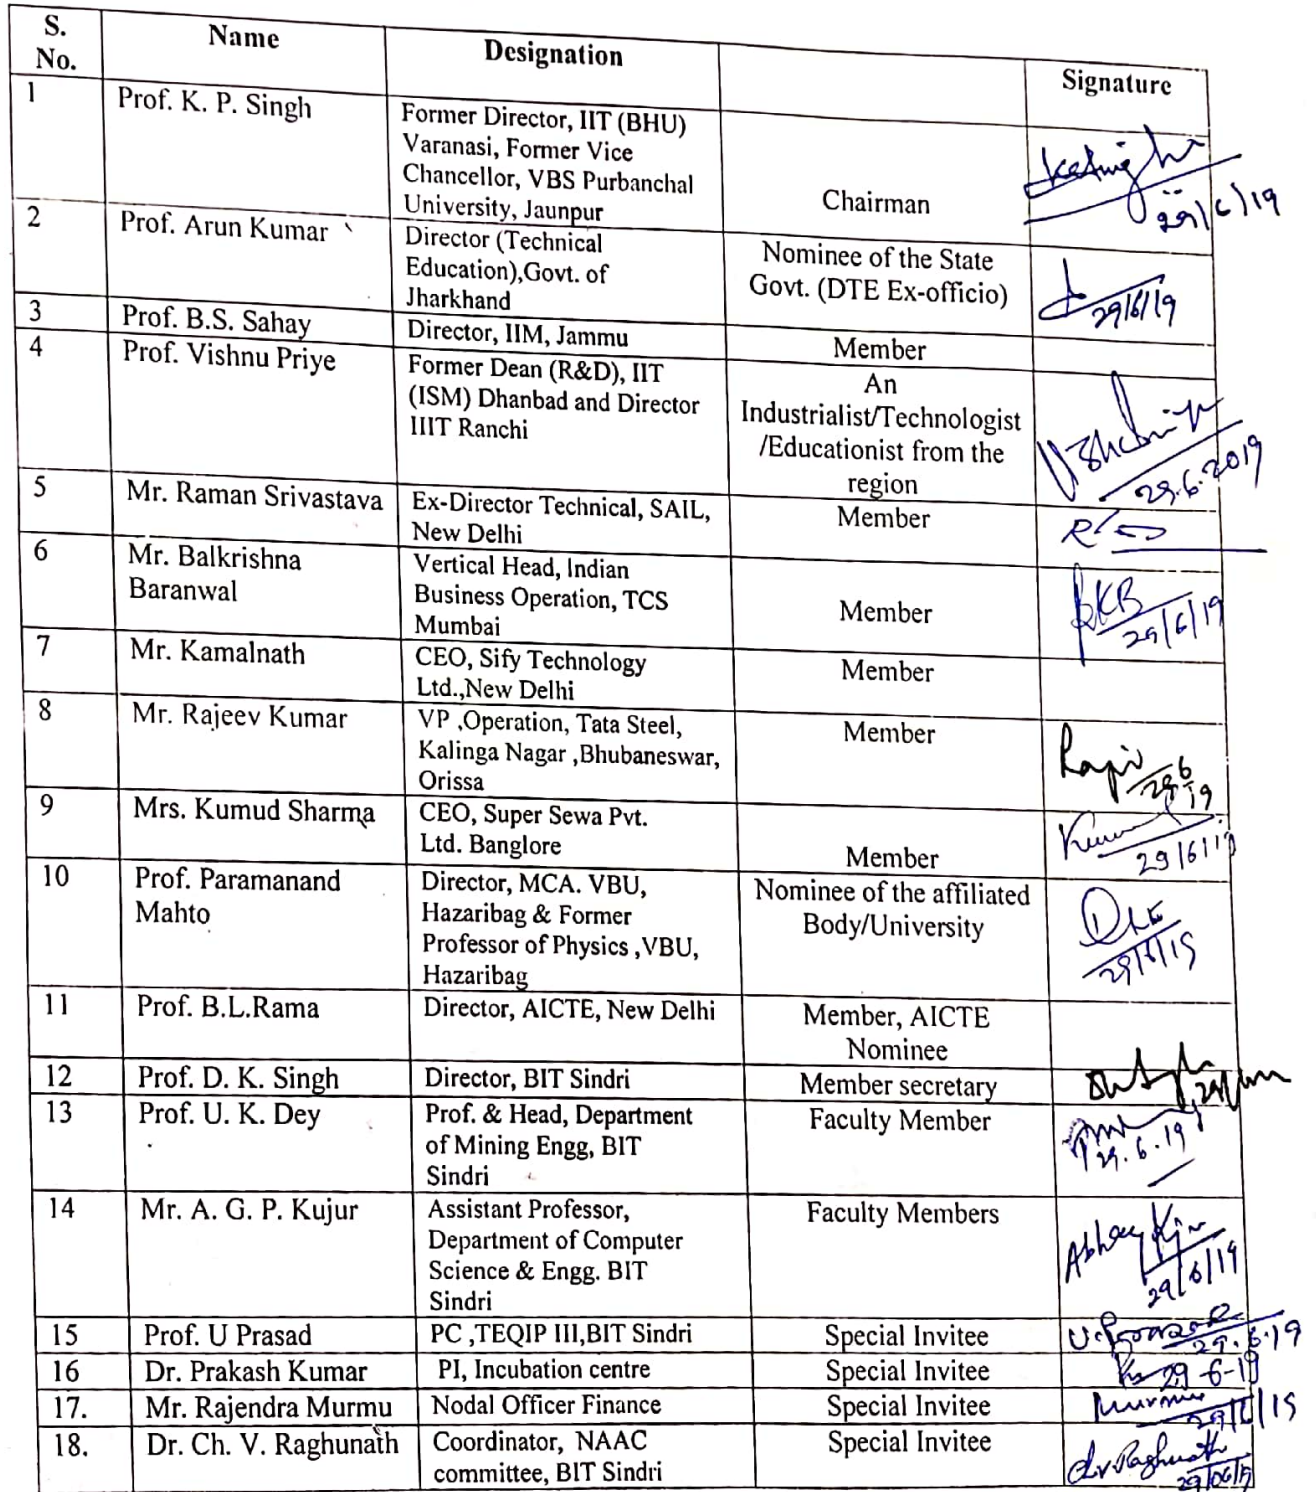 S. No. Name Designation Signature
1 Prof. K. P. Singh Former Director, IIT (BHU)
Varanasi, Former Vice
Chancellor, VBS Purbanchal
University, Jaunpur Chairman 29/6/19
2 Prof. Arun Kumar Director (Technical
Education),Govt. of
Jharkhand Nominee of the State
Govt. (DTE Ex-officio) 29/6/19
3 Prof. B.S. Sahay Director, IIM, Jammu Member
4 Prof. Vishnu Priye Former Dean (R&D), IIT
(ISM) Dhanbad and Director
IIIT Ranchi An
Industrialist/Technologist
/Educationist from the
region 29.6.2019
5 Mr. Raman Srivastava Ex-Director Technical, SAIL,
New Delhi Member
6 Mr. Balkrishna
Baranwal Vertical Head, Indian
Business Operation, TCS
Mumbai Member BKB
29/6/19
7 Mr. Kamalnath CEO, Sify Technology
Ltd.,New Delhi Member
8 Mr. Rajeev Kumar VP ,Operation, Tata Steel,
Kalinga Nagar ,Bhubaneswar,
Orissa Member
9 Mrs. Kumud Sharma CEO, Super Sewa Pvt.
Ltd. Banglore Member 29/6/19
10 Prof. Paramanand
Mahto Director, MCA. VBU,
Hazaribag & Former
Professor of Physics ,VBU,
Hazaribag Nominee of the affiliated
Body/University 29/6/19
11 Prof. B.L.Rama Director, AICTE, New Delhi Member, AICTE
Nominee
12 Prof. D. K. Singh Director, BIT Sindri Member secretary
13 Prof. U. K. Dey Prof. & Head, Department
of Mining Engg, BIT
Sindri Faculty Member 29.6.19
14 Mr. A. G. P. Kujur Assistant Professor,
Department of Computer
Science & Engg. BIT
Sindri Faculty Members Abhay Kujur
29/6/19
15 Prof. U Prasad PC ,TEQIP III,BIT Sindri Special Invitee U. Prasad
29.6.19
16 Dr. Prakash Kumar PI, Incubation centre Special Invitee 29-6-19
17. Mr. Rajendra Murmu Nodal Officer Finance Special Invitee Murmu
29/6/19
18. Dr. Ch. V. Raghunath Coordinator, NAAC
committee, BIT Sindri Special Invitee ch.v.Raghunath
29/06/19